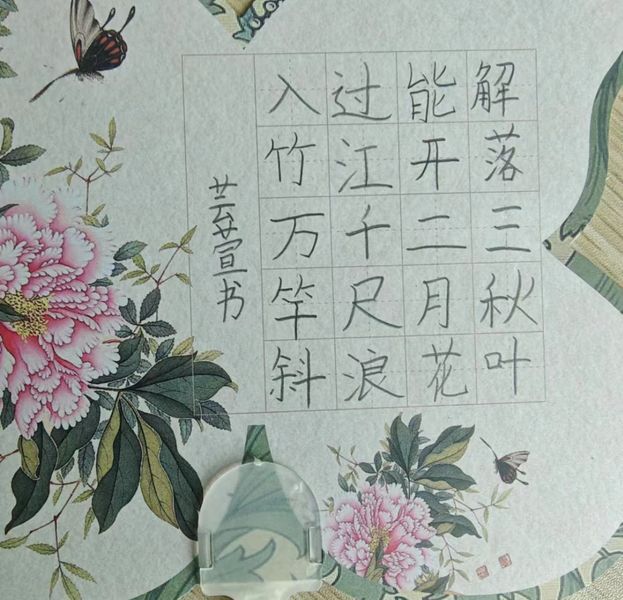 解落三秋叶
能开二月花
过江千尺浪
入竹万竿斜
芸萱书